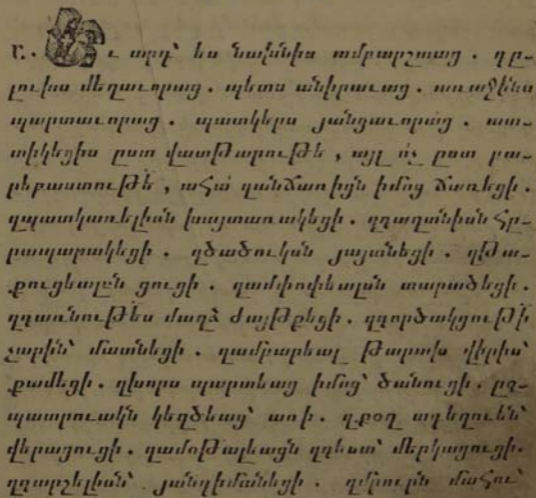 Ր. Եւ արդ՝ ես նախնիս ամբարշտաց. գը-
լուխս մեղաւորաց. պետս անիրաւաց. առաջինս
պարտաւորաց. պատկերս յանցաւորաց. ստ-
տիկեցիս ըստ վատթարութե, այլ ոչ ըստ բա-
րեբաստութե, ահա զանճառիցն իմոց ճառեցի.
զպատկառելիսն խայտառակեցի. զգաղտնիսն հր-
պարակեցի. զծածուկսն յայտնեցի. զթա-
քուցեալսն ցուցի. զամփոփեալսն տարածեցի.
զդառնութես մաղձ ժայթքեցի. զգործակցուիի
չարին՝ մատնեցի. զամբարեալ թարախ վիրիս՝
քամեցի. զխորս պարտեաց իմոց՝ ծանուցի. ըզ-
պատրուակն կեղծեաց՝ առի. զքօղ տգեղուեն՝
վերացուցի. զամօթալեացն զգեստ՝ մերկացուցի.
զգարշելիսն՝ յանդիմանեցի. զմրուրն մահու՝